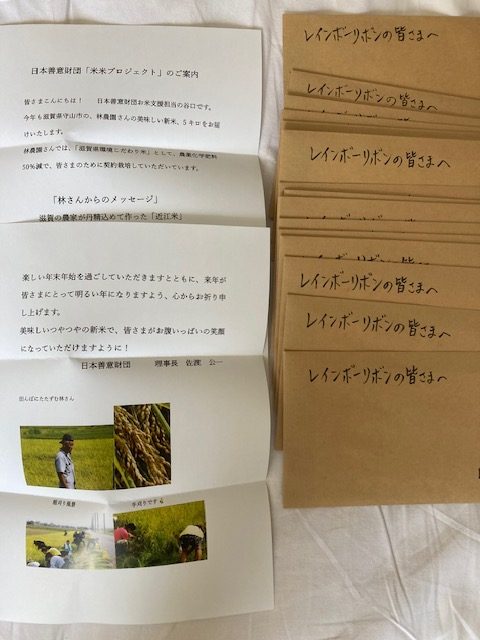 日本善意財団「米米プロジェクト」のご案内
皆さまこんにちは！　日本善意財団お米支援担当の谷口です。
今年も滋賀県守山市の、林農園さんの美味しい新米、5キロをお届
けいたします。
林農園さんでは、「滋賀県環境こだわり米」として、農薬化学肥料
50%減で、皆さまのために契約栽培していただいています。
「林さんからのメッセージ」
滋賀の農家が丹精込めて作った「近江米」
楽しい年末年始を過ごしていただきますとともに、来年が
皆さまにとって明るい年になりますよう、心からお祈り申
し上げます。
美味しいつやつやの新米で、皆さまがお腹いっぱいの笑顔
になっていただけますように！
日本善意財団　理事長　佐渡　公一
田んぼにたたずむ林さん
稲刈り風景
手刈りです
レインボーリボンの皆さまへ
レインボーリボンの皆さまへ
レインボーリボンの皆さまへ
レインボーリボンの皆さまへ
レインボーリボンの皆さまへ
レインボーリボンの皆さまへ